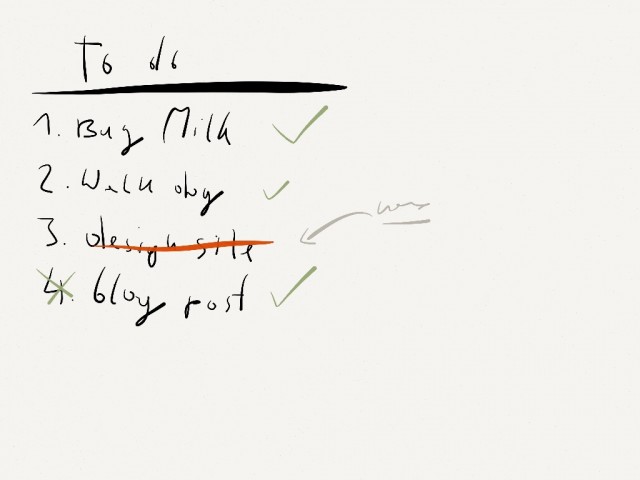 To do
1. Buy Milk
2. Walk dog
3. design site
4. blog post